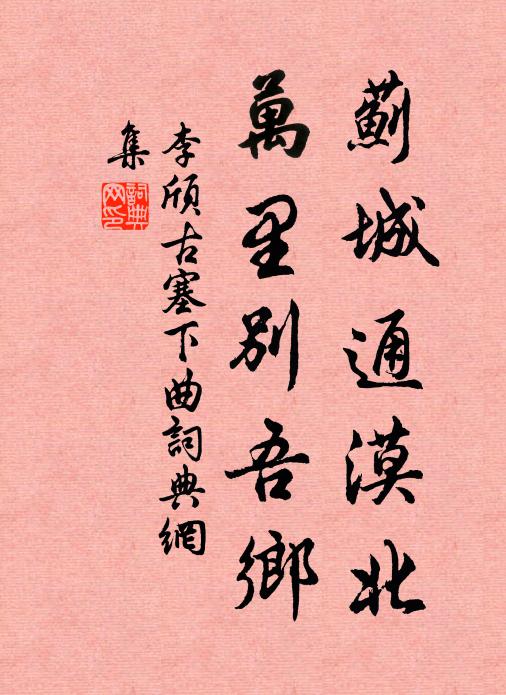 薊城通漠北
萬里別吾鄉
李頎古塞下曲詞典網
集
詞典
网印